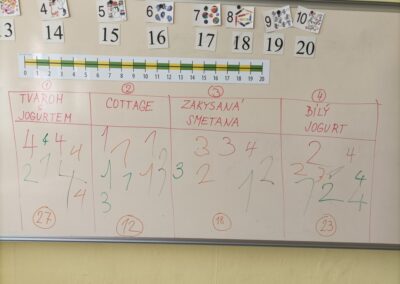 4 5 6 7 8 9 10
13 14 15 16 17 18 19 20
0 1 2 3 4 5 6 7 8 9 10 11 12 13 14 15 16 17 18 19 20
1 2 3 4
TVAROH S JOGURTEM
COTTAGE
ZAKYSANÁ SMETANA
BÍLÝ JOGURT
4 4 4 4
1 1 1
3 3 4
2 4
2 1
1 1 1 3
3 2 1 2
4
3
2 4
27 12 18 23